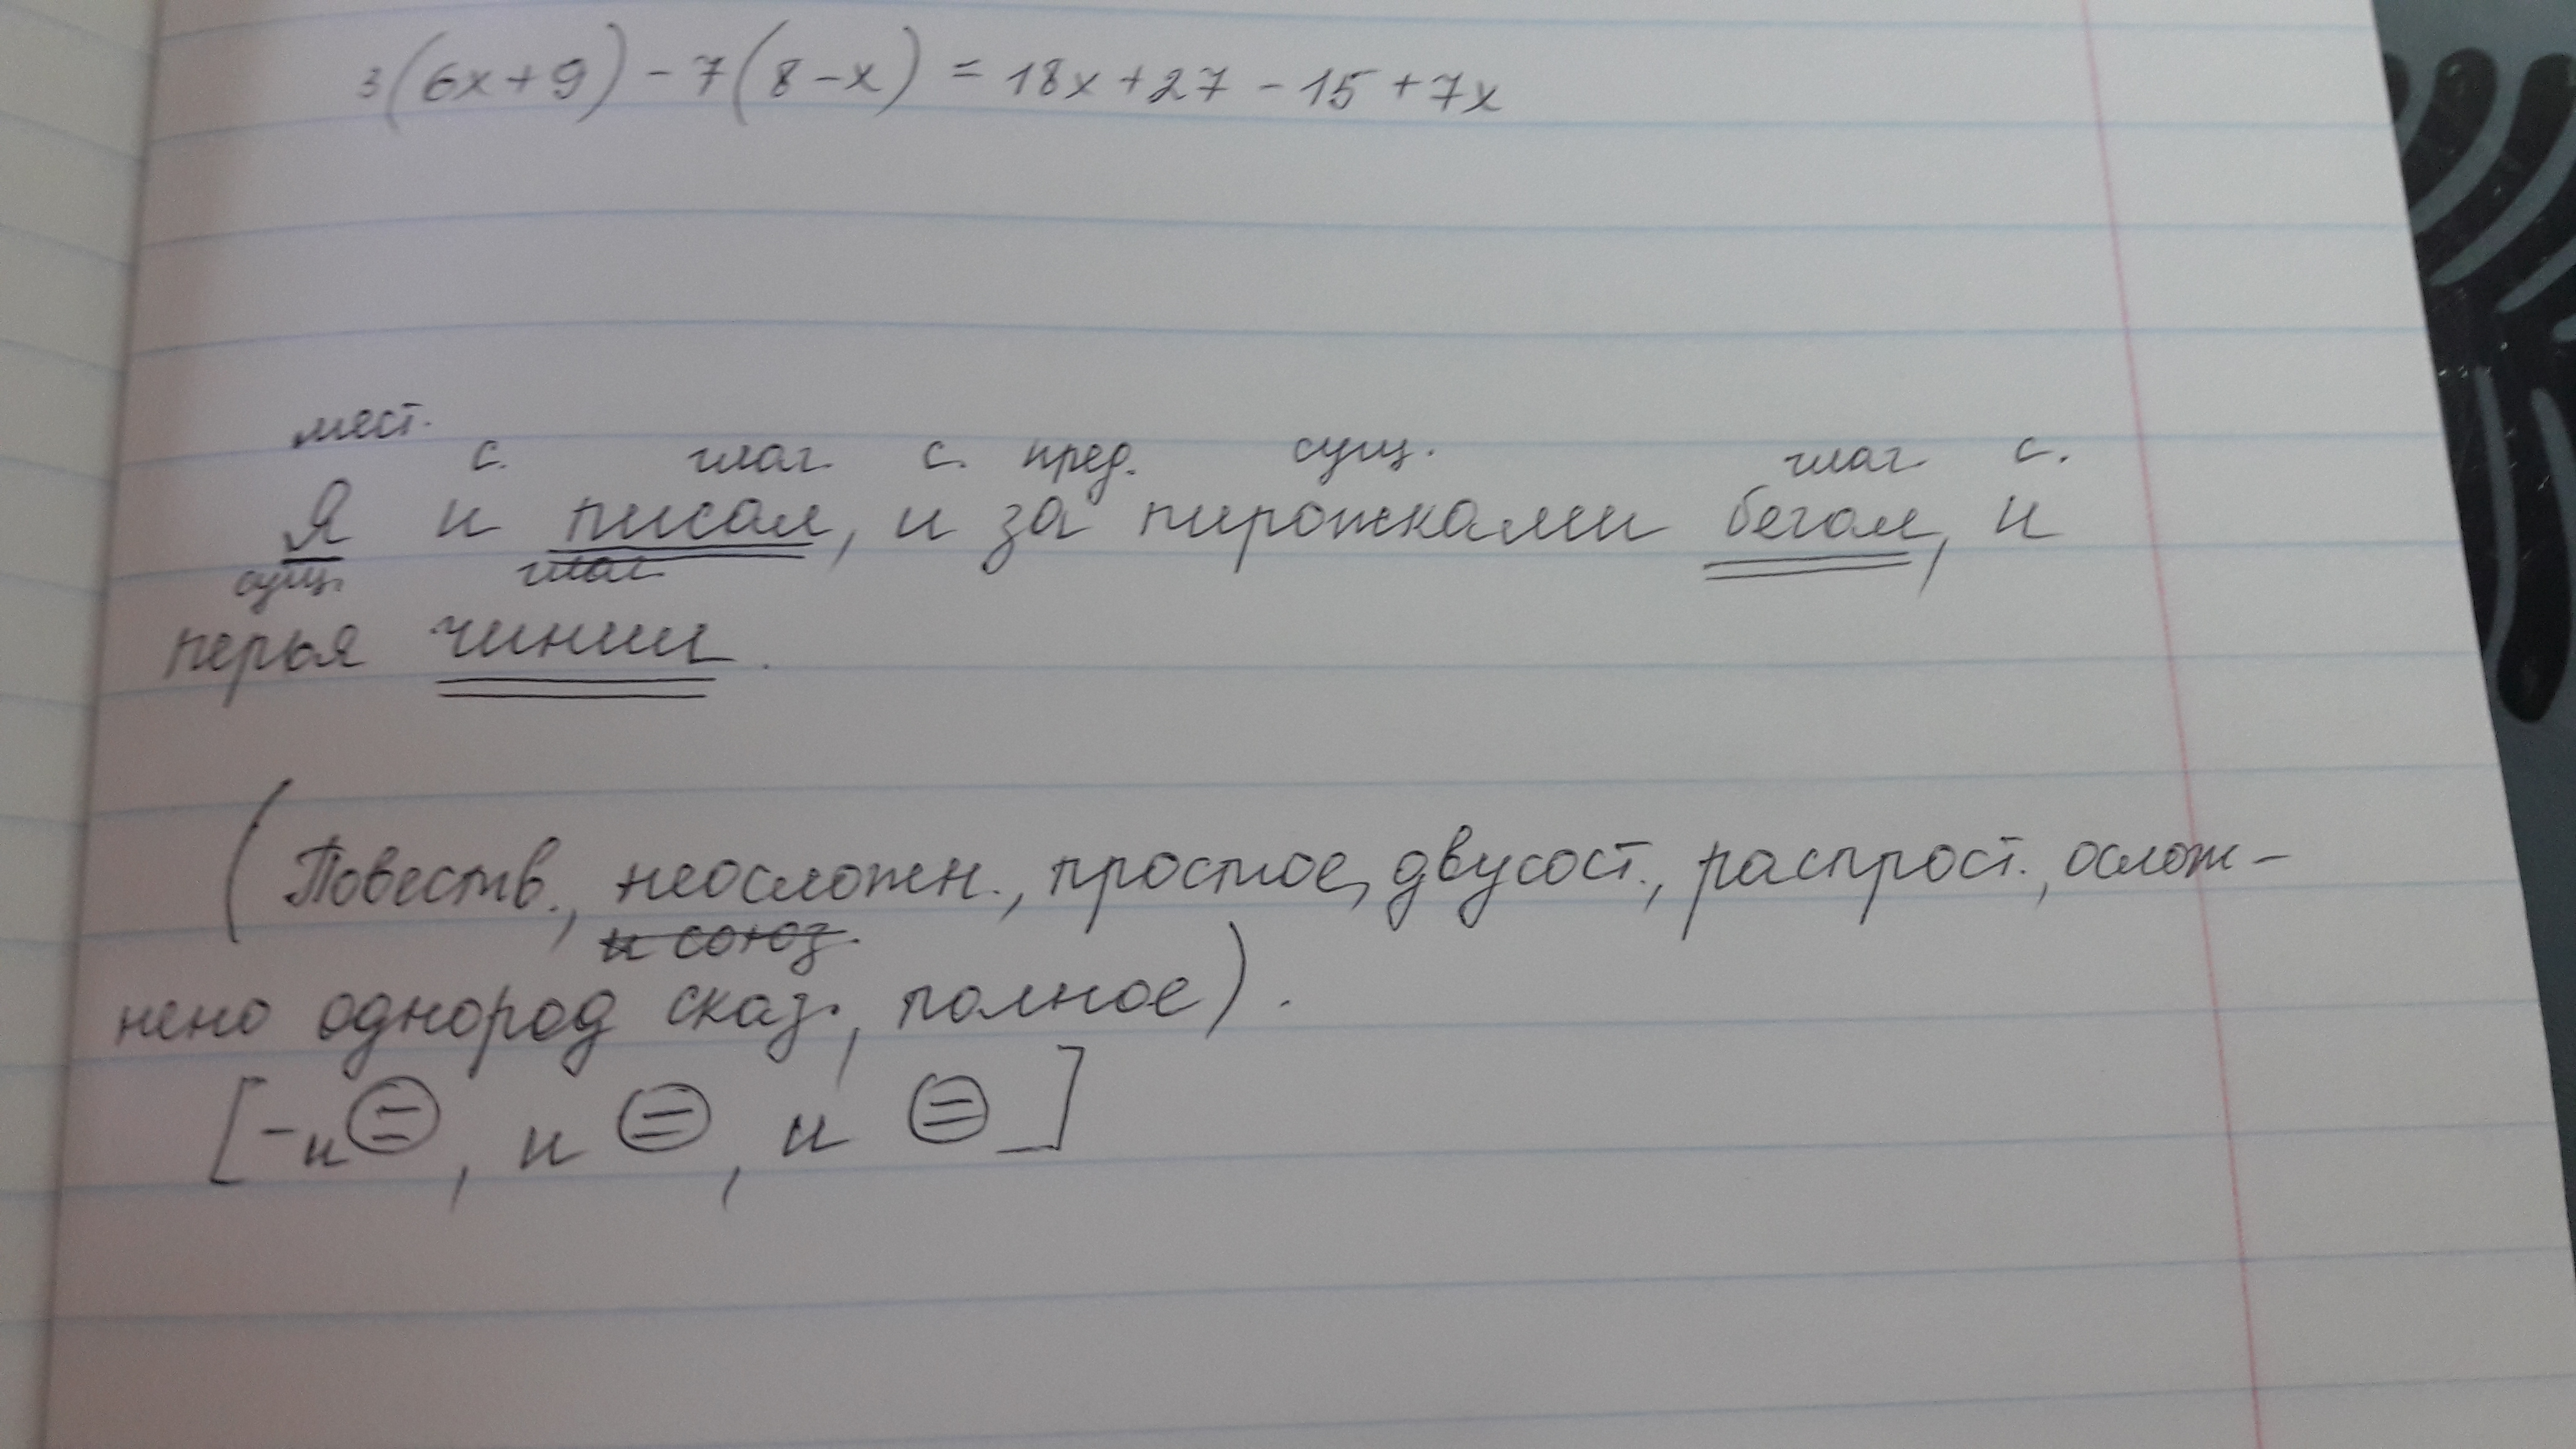 3(6x+9) - 7(8-x) = 18x+27 - 15 +7x
мест. с. глаг. с. пред. сущ. глаг с.
Я и писал, и за пирожками бегал, и
сущ. глаг
перья чинил.
(Повеств., неосложн., простое, двусост., распрост., ослож-
и союз.
нено однород сказ., полное).
[- и =, и =, и = ]